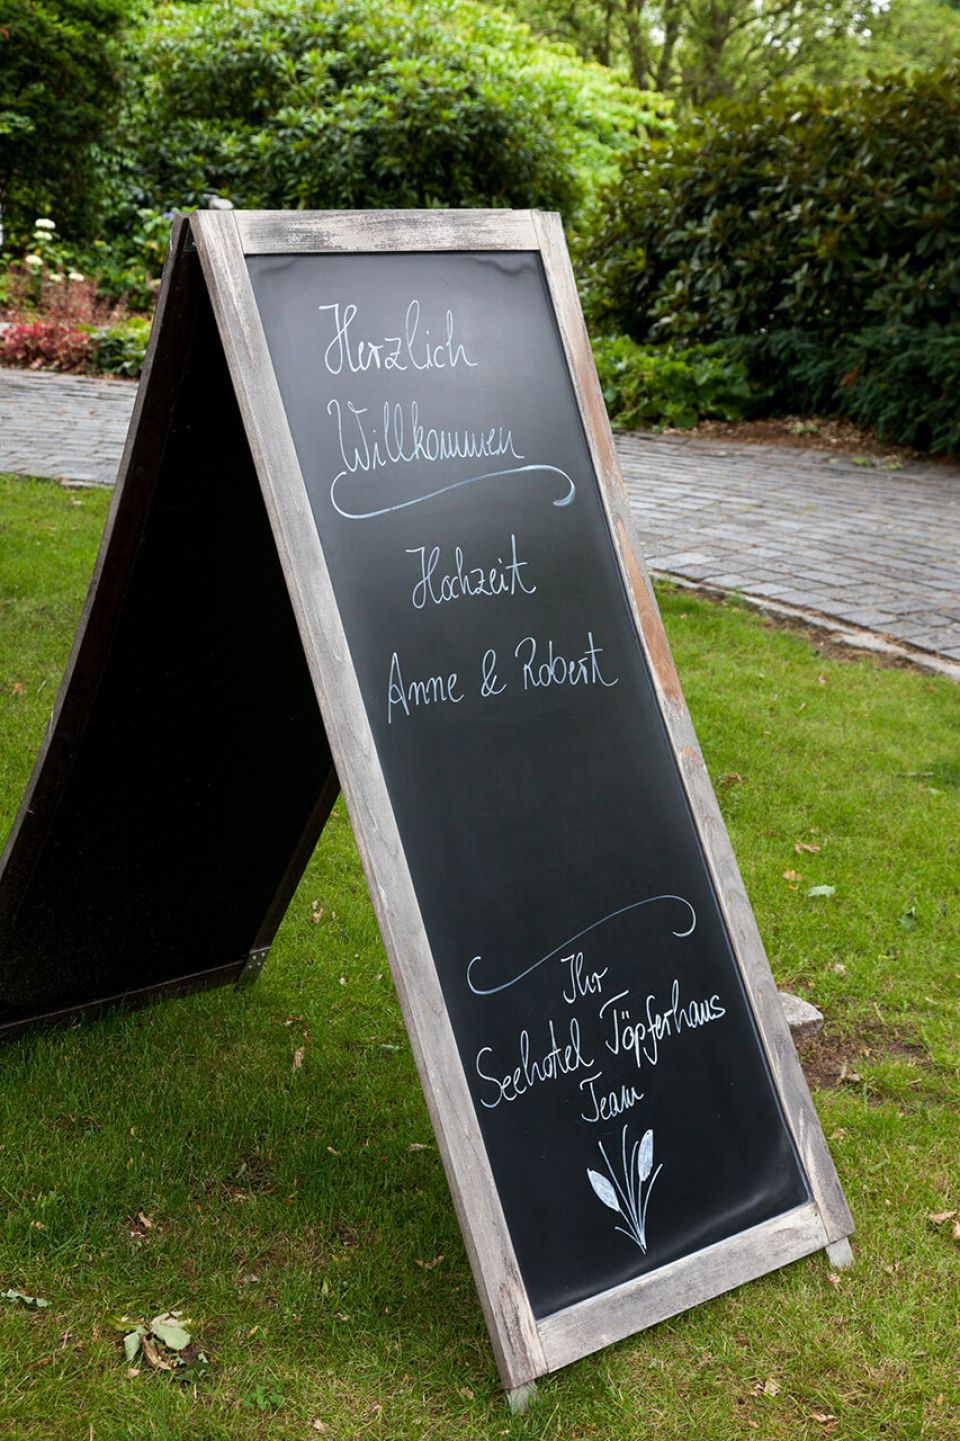 Herzlich
Willkommen
Hochzeit
Anne & Robert
Ihr
Seehotel Töpferhaus
Team